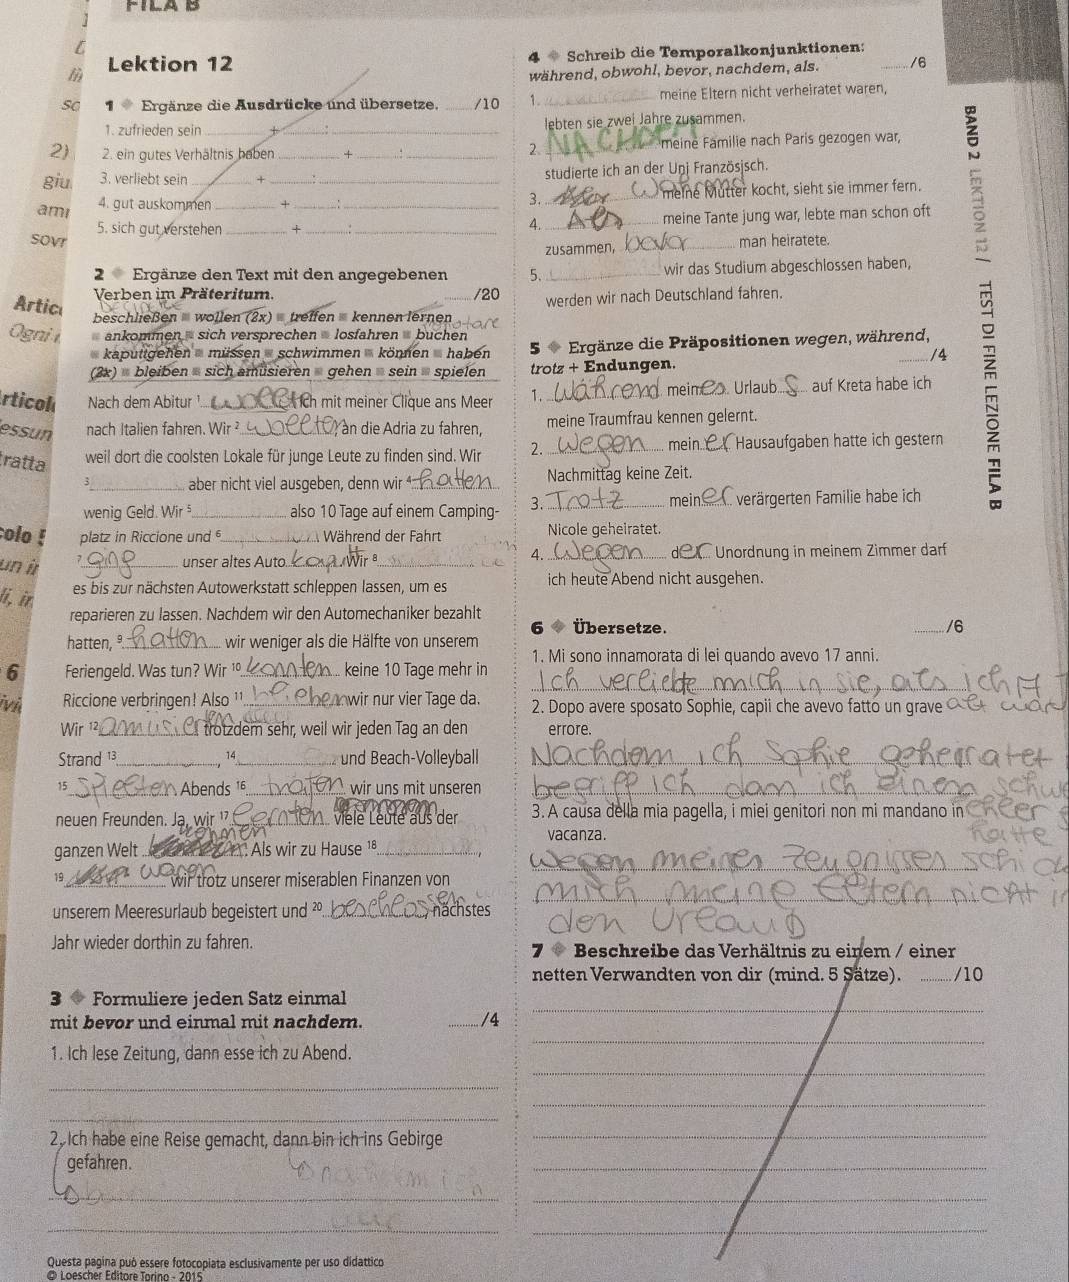 FILA B
Lektion 12
1 Ergänze die Ausdrücke und übersetze. /10
1. zufrieden sein + :
2. ein gutes Verhältnis haben + :
3. verliebt sein + :
4. gut auskommen + :
5. sich gut verstehen + :
2 Ergänze den Text mit den angegebenen
Verben im Präteritum. /20
beschließen wollen (2x) treffen kennen lernen
ankommen sich versprechen losfahren buchen
kaputtgehen müssen schwimmen können haben
(2x) bleiben sich amüsieren gehen sein spielen
Nach dem Abitur 1 ich mit meiner Clique ans Meer
nach Italien fahren. Wir 2 wollten an die Adria zu fahren,
weil dort die coolsten Lokale für junge Leute zu finden sind. Wir
3 aber nicht viel ausgeben, denn wir 4 hatten
wenig Geld. Wir 5 also 10 Tage auf einem Camping-
platz in Riccione und 6 Während der Fahrt
7 ging unser altes Auto kaputt Wir 8
es bis zur nächsten Autowerkstatt schleppen lassen, um es
reparieren zu lassen. Nachdem wir den Automechaniker bezahlt
hatten, 9 hatten wir weniger als die Hälfte von unserem
Feriengeld. Was tun? Wir 10 konnten keine 10 Tage mehr in
Riccione verbringen! Also 11 wir nur vier Tage da.
Wir 12 trotzdem sehr, weil wir jeden Tag an den
Strand 13 , 14 und Beach-Volleyball
15 spielten Abends 16 trafen wir uns mit unseren
neuen Freunden. Ja, wir 17 lernten viele Leute aus der
ganzen Welt . Als wir zu Hause 18 ,
19 waren wir trotz unserer miserablen Finanzen von
unserem Meeresurlaub begeistert und 20 beschlossen nächstes
Jahr wieder dorthin zu fahren.
3 Formuliere jeden Satz einmal
mit bevor und einmal mit nachdem. /4
1. Ich lese Zeitung, dann esse ich zu Abend.
2. Ich habe eine Reise gemacht, dann bin ich ins Gebirge
gefahren.
4 Schreib die Temporalkonjunktionen:
während, obwohl, bevor, nachdem, als. /6
1. meine Eltern nicht verheiratet waren,
lebten sie zwei Jahre zusammen.
2. NACHDEM meine Familie nach Paris gezogen war,
studierte ich an der Uni Französisch.
3. Während meine Mutter kocht, sieht sie immer fern.
4. Als meine Tante jung war, lebte man schon oft
zusammen, bevor man heiratete.
5. wir das Studium abgeschlossen haben,
werden wir nach Deutschland fahren.
5 Ergänze die Präpositionen wegen, während,
trotz + Endungen. /4
1. Während meines Urlaub s auf Kreta habe ich
meine Traumfrau kennen gelernt.
2. Wegen mein er Hausaufgaben hatte ich gestern
Nachmittag keine Zeit.
3. Trotz mein er verärgerten Familie habe ich
Nicole geheiratet.
4. Wegen d er Unordnung in meinem Zimmer darf
ich heute Abend nicht ausgehen.
6 Übersetze. /6
1. Mi sono innamorata di lei quando avevo 17 anni.
Ich verliebte mich in sie, als ich 17
2. Dopo avere sposato Sophie, capii che avevo fatto un grave alt war
errore.
Nachdem ich Sophie geheiratet
begriff ich dam ich einen
3. A causa della mia pagella, i miei genitori non mi mandano in
vacanza.
hatte
wegen meinen Zeugnisses
mich meine Eltern nicht in
den Urlaub
7 Beschreibe das Verhältnis zu einem / einer
netten Verwandten von dir (mind. 5 Sätze). /10
BAND 2 LEKTION 12 / TEST DI FINE LEZIONE FILA B
Questa pagina può essere fotocopiata esclusivamente per uso didattico
© Loescher Editore Torino - 2015